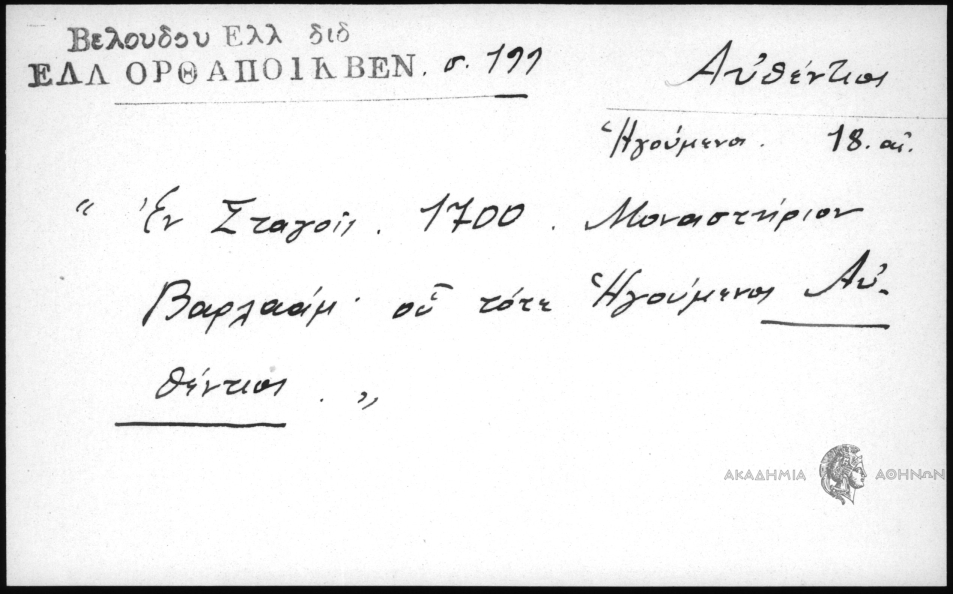 Βελουδου Ελλ διδ
ΕΛΛ ΟΡΘ ΑΠΟΙΚ ΒΕΝ. σ. 199
Αὐθέντιος
Ἡγούμενος. 18. αἰ.
“ Ἐν Σταγοῖς. 1700. Μοναστήριον
Βαρλαάμ· οὗ τότε Ἡγούμενος Αὐ-
θέντιος. „
ΑΚΑΔΗΜΙΑ ΑΘΗΝΩΝ